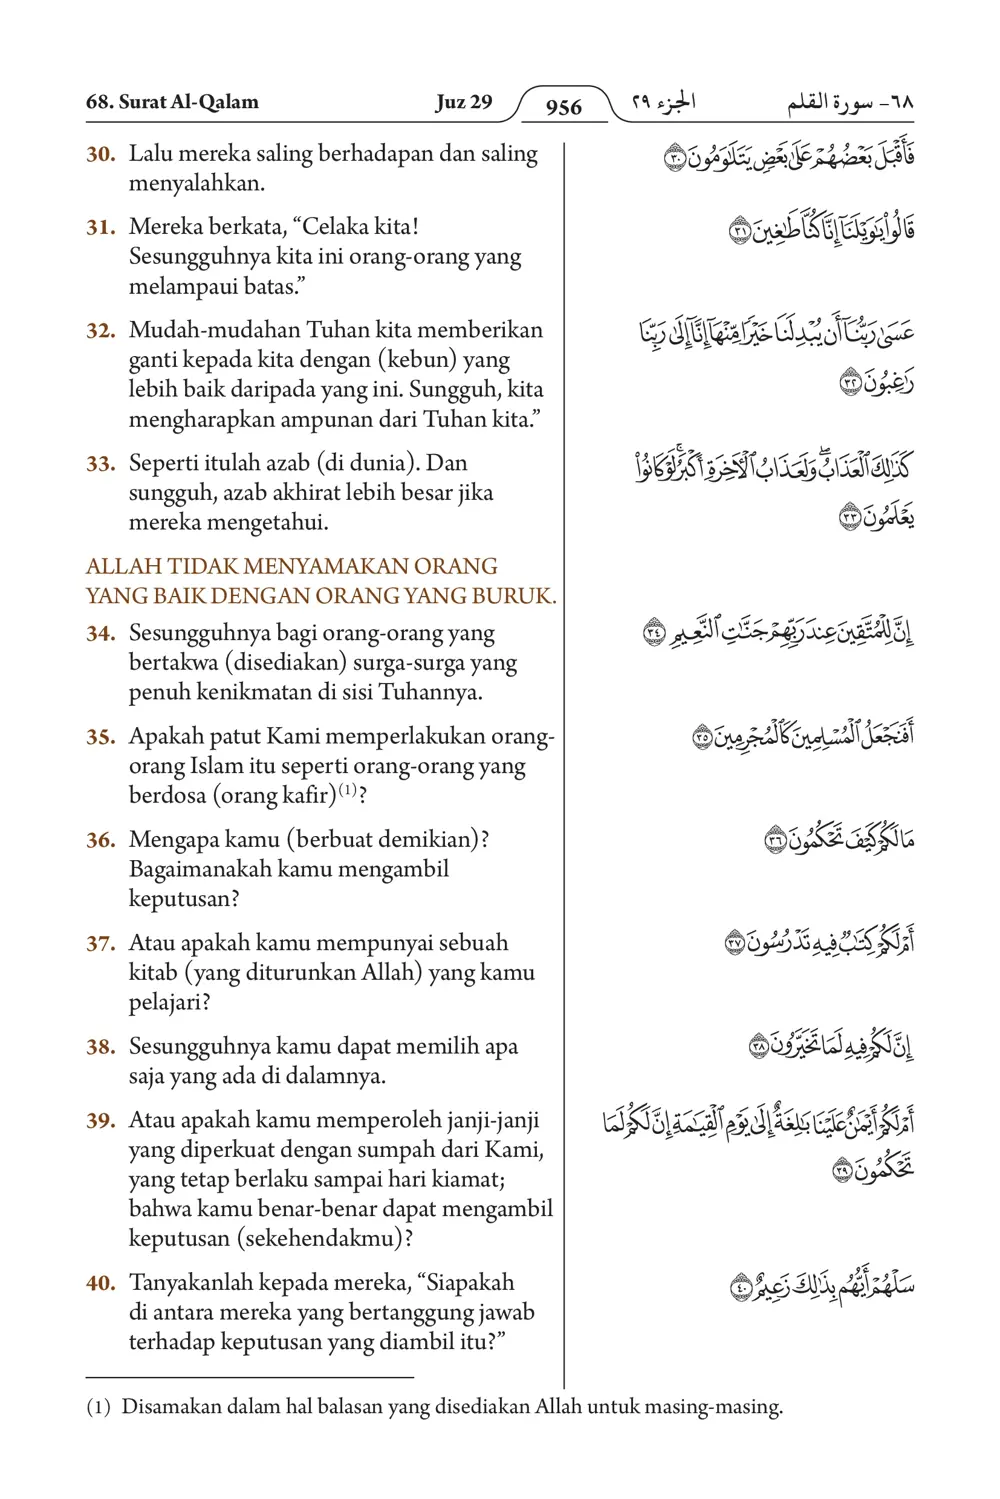 68. Surat Al-Qalam Juz 29 956 الجزء ٢٩ ٦٨- سورة القلم
30. Lalu mereka saling berhadapan dan saling
menyalahkan.
فَأَقْبَلَ بَعْضُهُمْ عَلَىٰ بَعْضٍ يَتَلَٰوَمُونَ ٣٠
31. Mereka berkata, “Celaka kita!
Sesungguhnya kita ini orang-orang yang
melampaui batas.”
قَالُوا۟ يَٰوَيْلَنَآ إِنَّا كُنَّا طَٰغِينَ ٣١
32. Mudah-mudahan Tuhan kita memberikan
ganti kepada kita dengan (kebun) yang
lebih baik daripada yang ini. Sungguh, kita
mengharapkan ampunan dari Tuhan kita.”
عَسَىٰ رَبُّنَآ أَن يُبْدِلَنَا خَيْرًا مِّنْهَآ إِنَّآ إِلَىٰ رَبِّنَا
رَٰغِبُونَ ٣٢
33. Seperti itulah azab (di dunia). Dan
sungguh, azab akhirat lebih besar jika
mereka mengetahui.
كَذَٰلِكَ ٱلْعَذَابُ ۖ وَلَعَذَابُ ٱلْءَاخِرَةِ أَكْبَرُ ۚ لَوْ كَانُوا۟
يَعْلَمُونَ ٣٣
ALLAH TIDAK MENYAMAKAN ORANG
YANG BAIK DENGAN ORANG YANG BURUK.
34. Sesungguhnya bagi orang-orang yang
bertakwa (disediakan) surga-surga yang
penuh kenikmatan di sisi Tuhannya.
إِنَّ لِلْمُتَّقِينَ عِندَ رَبِّهِمْ جَنَّٰتِ ٱلنَّعِيمِ ٣٤
35. Apakah patut Kami memperlakukan orang-
orang Islam itu seperti orang-orang yang
berdosa (orang kafir)(1)?
أَفَنَجْعَلُ ٱلْمُسْلِمِينَ كَٱلْمُجْرِمِينَ ٣٥
36. Mengapa kamu (berbuat demikian)?
Bagaimanakah kamu mengambil
keputusan?
مَا لَكُمْ كَيْفَ تَحْكُمُونَ ٣٦
37. Atau apakah kamu mempunyai sebuah
kitab (yang diturunkan Allah) yang kamu
pelajari?
أَمْ لَكُمْ كِتَٰبٌ فِيهِ تَدْرُسُونَ ٣٧
38. Sesungguhnya kamu dapat memilih apa
saja yang ada di dalamnya.
إِنَّ لَكُمْ فِيهِ لَمَا تَخَيَّرُونَ ٣٨
39. Atau apakah kamu memperoleh janji-janji
yang diperkuat dengan sumpah dari Kami,
yang tetap berlaku sampai hari kiamat;
bahwa kamu benar-benar dapat mengambil
keputusan (sekehendakmu)?
أَمْ لَكُمْ أَيْمَٰنٌ عَلَيْنَا بَٰلِغَةٌ إِلَىٰ يَوْمِ ٱلْقِيَٰمَةِ إِنَّ لَكُمْ لَمَا
تَحْكُمُونَ ٣٩
40. Tanyakanlah kepada mereka, “Siapakah
di antara mereka yang bertanggung jawab
terhadap keputusan yang diambil itu?”
سَلْهُمْ أَيُّهُم بِذَٰلِكَ زَعِيمٌ ٤٠
(1) Disamakan dalam hal balasan yang disediakan Allah untuk masing-masing.